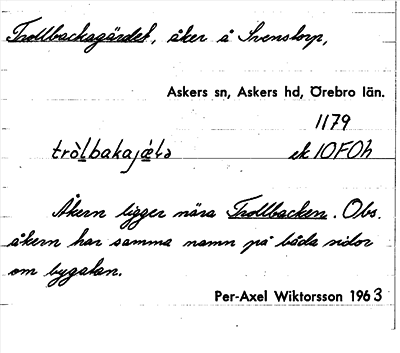 Trollbackagärdet, åker å Svenstorp,
Askers sn, Askers hd, Örebro län.
1179
ek 10F0h
Åkern ligger nära Trollbacken. Obs.
åkern har samma namn på båda sidor
om bygatan.
Per-Axel Wiktorsson 1963